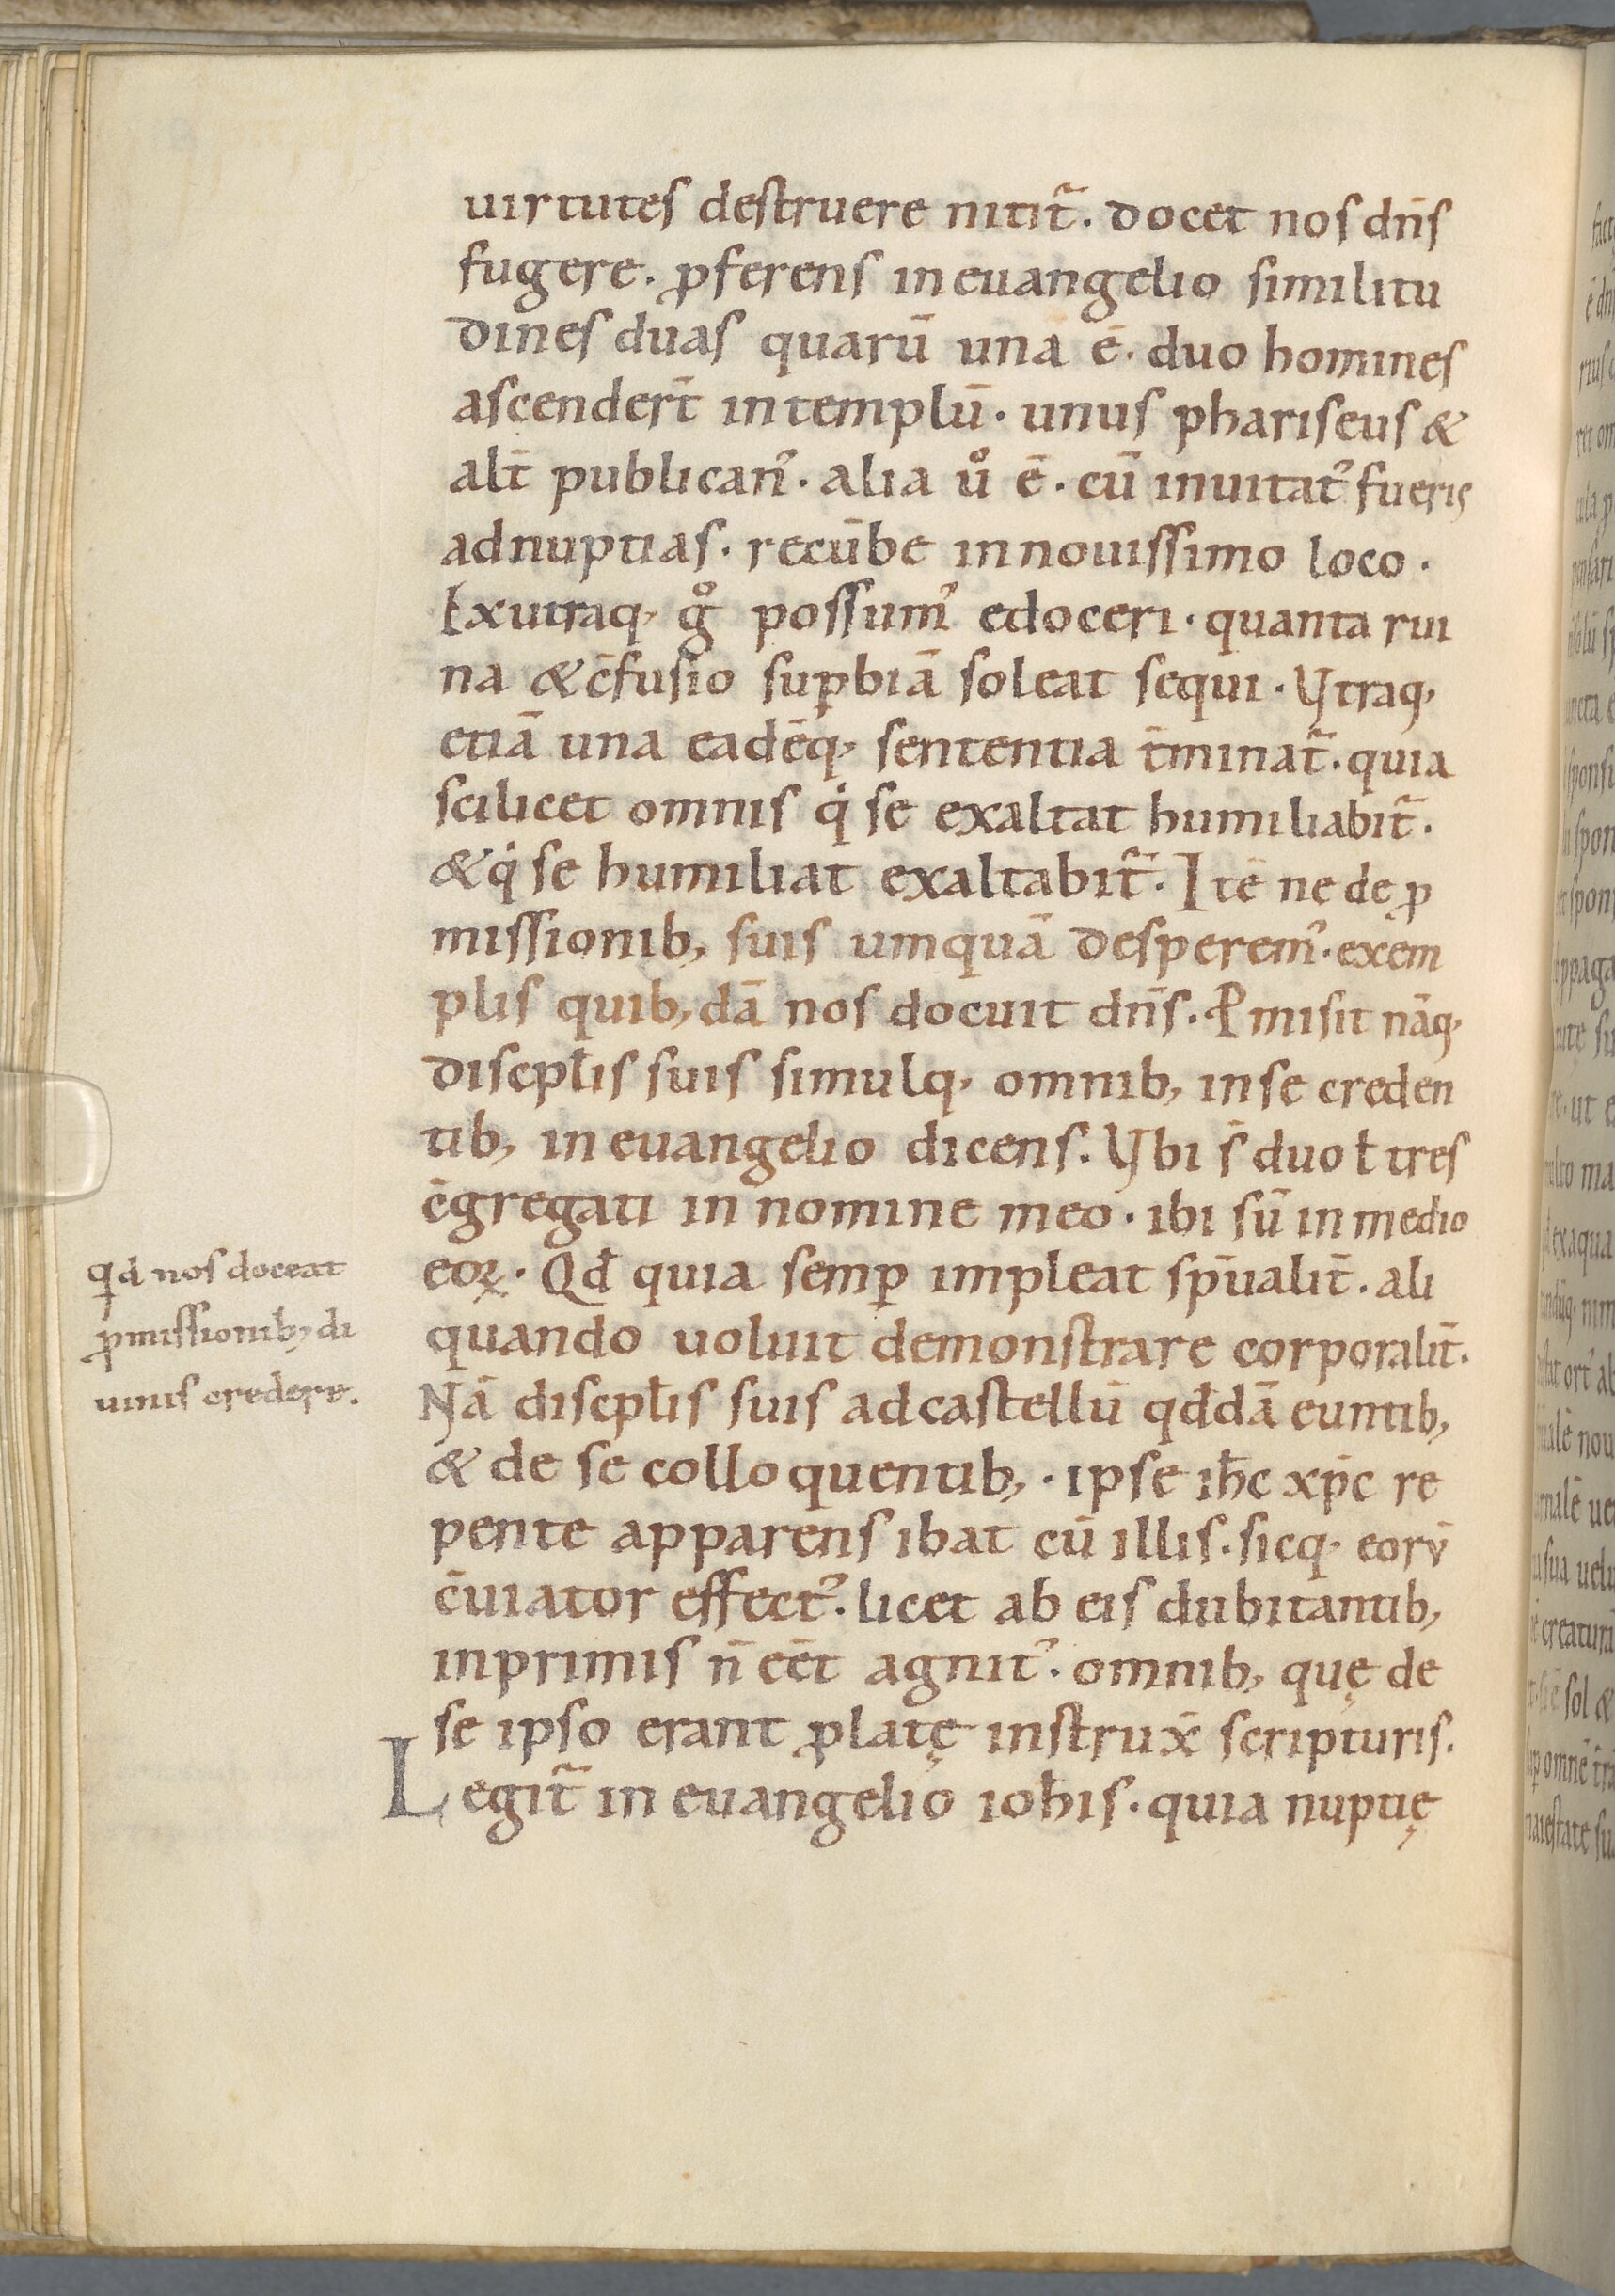 uirtutes destruere nitit᷑. docet nos dn̄s
fugere. ꝓferens in euangelio similitu
dines duas quarū una ē. duo homines
ascendert̄ in templū. unus phariseus &
alt̄ publican᷒. alia uͦ ē. cū inuitat᷒ fueris
ad nuptias. recūbe in nouissimo loco.
Ex utraq; gͦ possum᷒ edoceri. quanta rui
na & c̄fusio suꝑbiā soleat sequi. Vtraq;
etiā una eadēq; sententia t̄minat᷑. quia
scilicet omnis qⁱ se exaltat humiliabit᷑.
& qⁱ se humiliat exaltabit᷑. Itē ne de ꝓ
missionib; suis umquā desperem᷒. exem
plis quib;dā nos docuit dn̄s. Ꝓmisit nāq;
discipl̄is suis simulq; omnib; in se creden
tib; in euangelio dicens. Vbi s̄ duo ł tres
c̄gregati in nomine meo. ibi sū in medio
eoꝝ. Qđ quia semꝑ impleat sp̄ualit̄. ali
quando uoluit demonstrare corporalit̄.
Nā discipl̄is suis ad castellū qđdā euntib;
& de se colloquentib;. ipse ih̄c xp̄c re
pente apparens ibat cū illis. sicq; eorū
c̄uiator effect᷒. licet ab eis dubitantib;
inprimis n̄ eēt agnit᷒. omnib; quę de
se ipso erant ꝓlatę instrux̄ scripturis.
Legit᷑ in euangelio ioh̄is. quia nuptię
qđ nos doceat
ꝓmissionib; di
uinis credere.